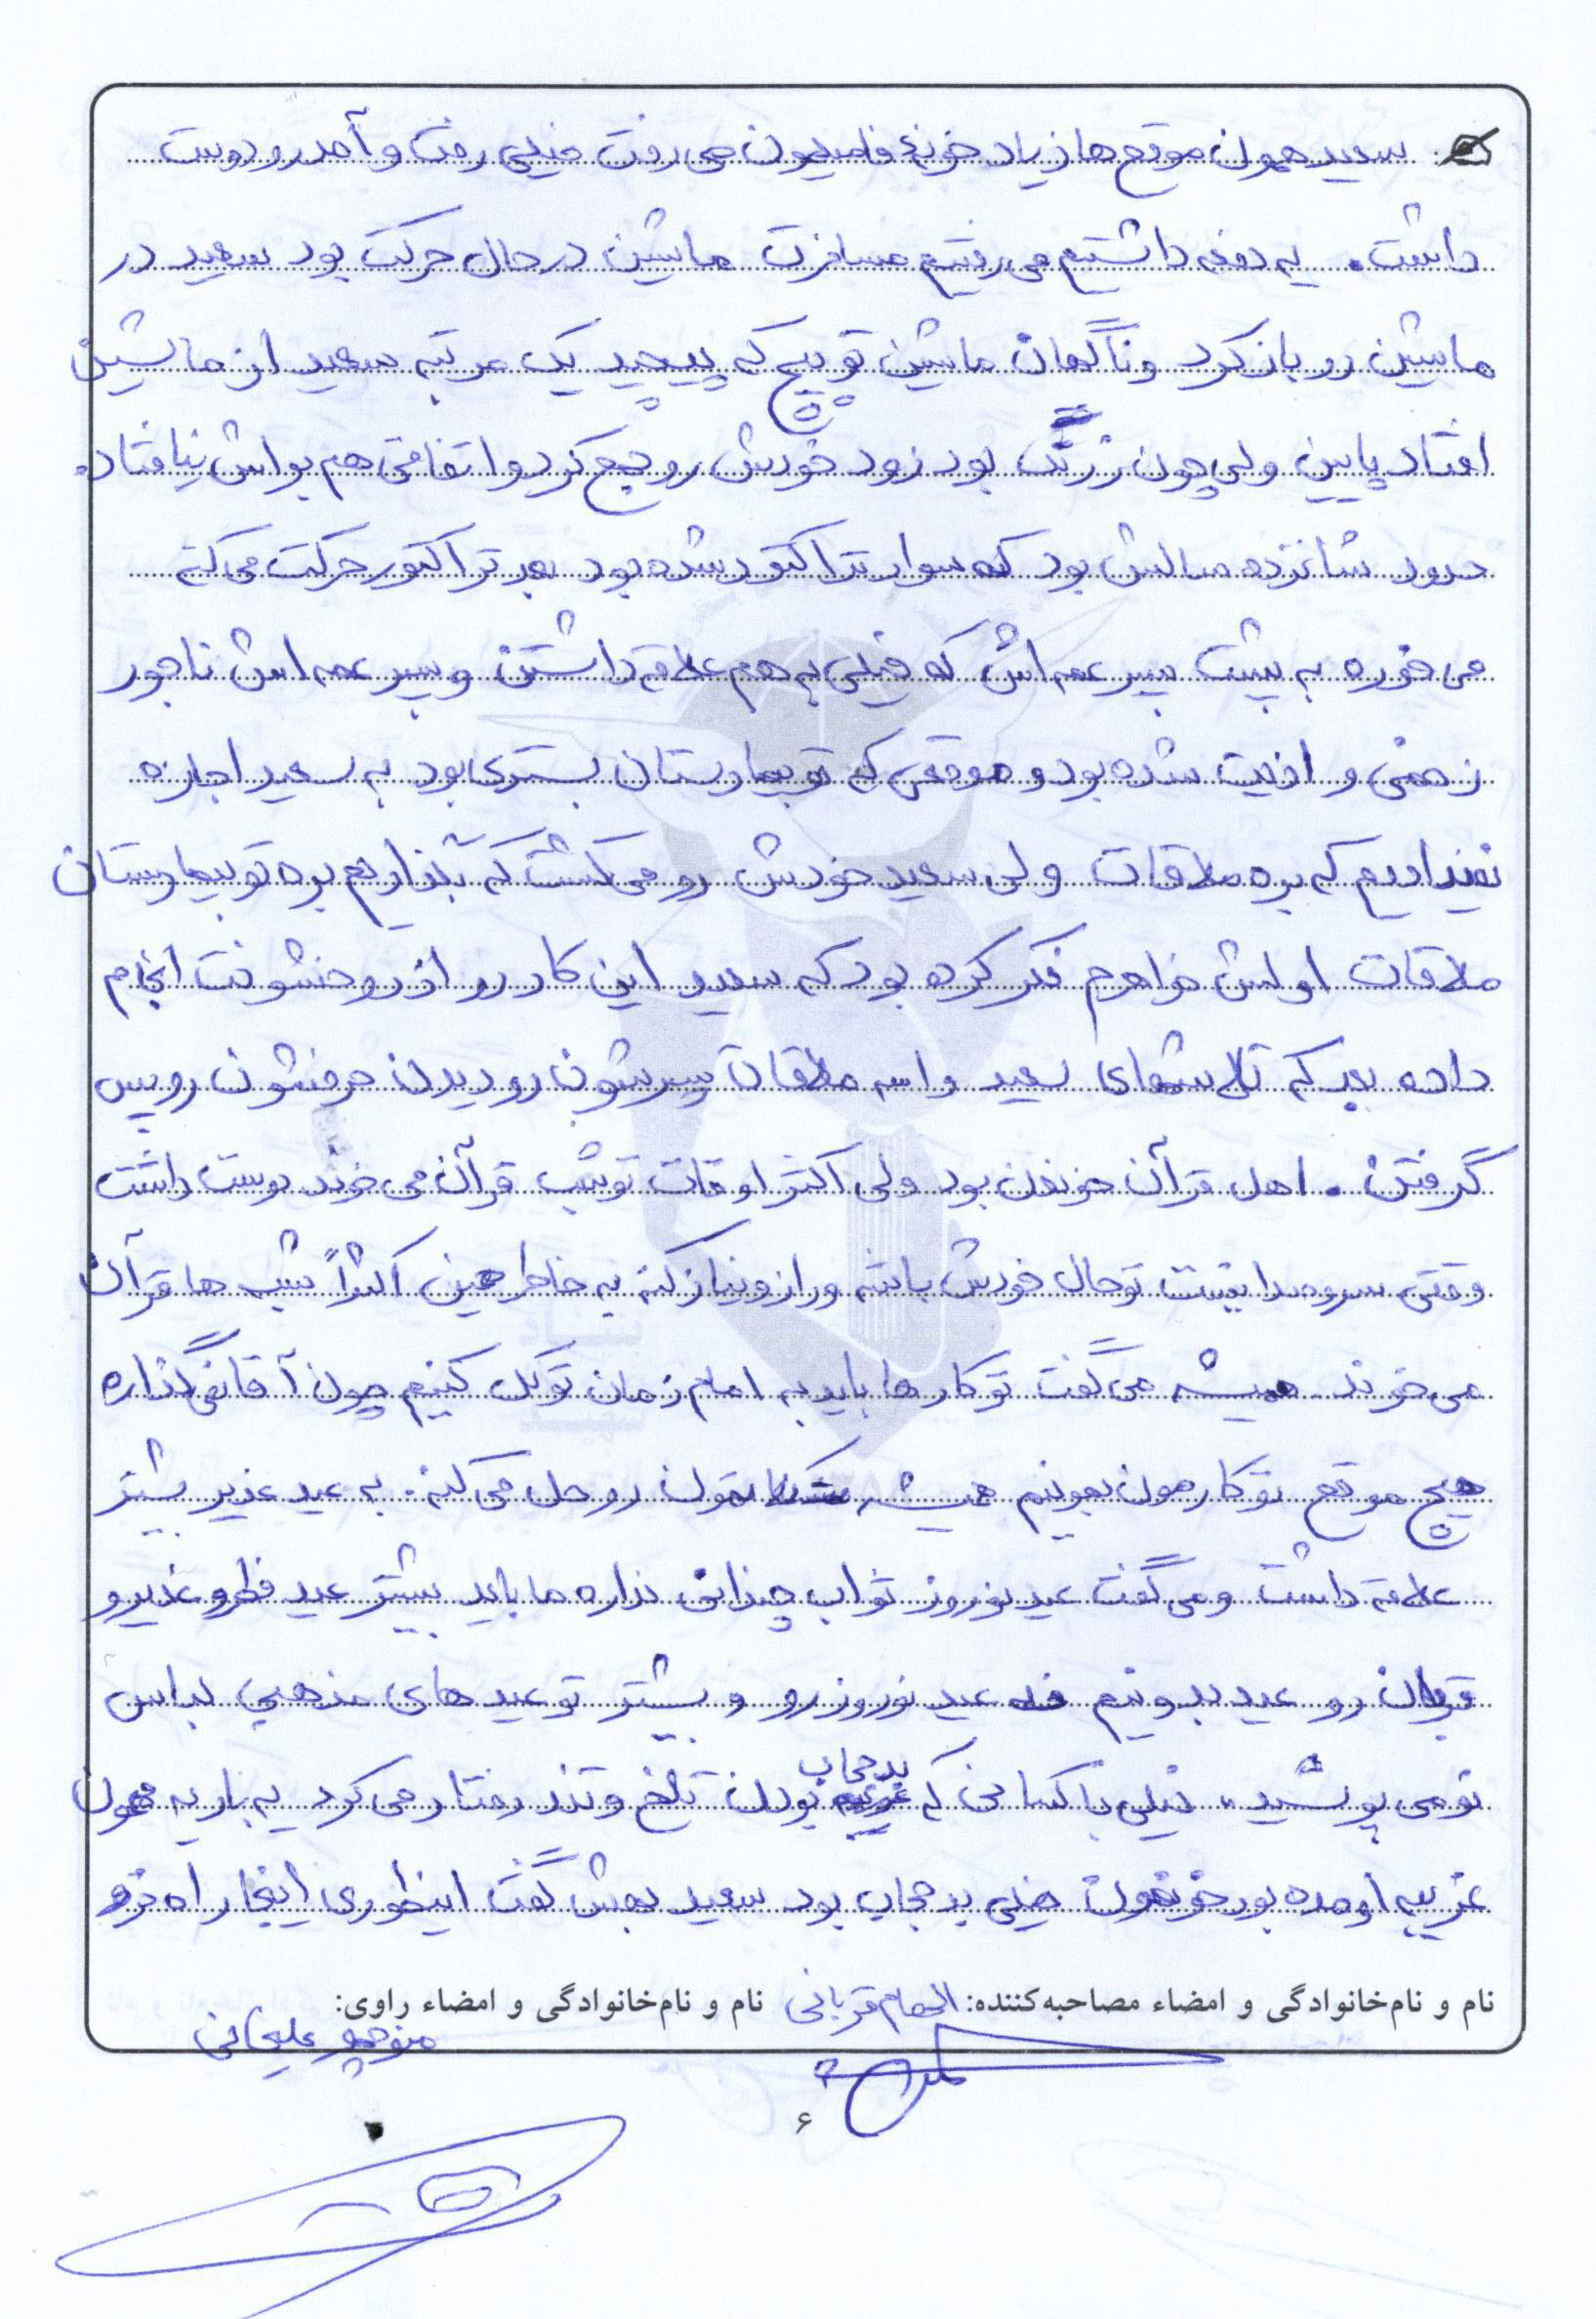 سعید همون موقع ها زیاد خونهٔ فامیلمون می رفت خیلی رفت و آمد رو دوست
داشت. یه دفعه داشتیم می رفتیم مسافرت ماشین در حال حرکت بود سعید در
ماشین رو باز کرد و ناگهان ماشین تو پیچ که پیچید یک مرتبه سعید از ماشین
افتاد پایین ولی چون زرنگ بود زود خودش رو جمع کرد و اتفاقی هم براش نیافتاد.
حدود شانزده سالش بود که سوار تراکتور شده بود بعد تراکتور حرکت می کنه
می خوره به پشت پسر عمه اش که خیلی به هم علاقه داشتن و پسر عمه اش ناجور
زخمی و اذیت شده بود و موقعی که تو بیمارستان بستری بود به سعید اجازه
نمیدادیم که بره ملاقات ولی سعید خودش رو می کشت که بگذاریم بره تو بیمارستان
ملاقات اولش خواهرم فکر کرده بود که سعید این کار رو از رو خشونت انجام
داده بعد که تلاشهای سعید واسه ملاقات پسرشون رو دیدن حرفشون رو پس
گرفتن. اهل قرآن خوندن بود ولی اکثر اوقات تو شب قرآن می خوند دوست داشت
وقتی سروصدا نیست تو حال خودش باشه و راز و نیاز کنه به خاطر همین اکثراً شب ها قرآن
می خوند همیشه می گفت تو کارها باید به امام زمان توکل کنیم چون آقا نمی گذاره
هیچ موقع تو کارمون بمونیم همیشه مشکلاتمون رو حل می کنه. به عید غدیر بیشتر
علاقه داشت و می گفت عید نوروز ثواب چندانی نداره ما باید بیشتر عید فطر و غدیر و
قربان رو عید بدونیم نه عید نوروز رو و بیشتر تو عید های مذهبی لباس
نو می پوشید. خیلی با کسانی که بدحجاب بودن تلخ و تند رفتار می کرد یه بار یه مهمون
غریبه اومده بود خونمون خیلی بد حجاب بود سعید بهش گفت اینطوری اینجا راه نرو
نام و نام‌خانوادگی و امضاء مصاحبه‌کننده: الهام قربانی نام و نام‌خانوادگی و امضاء راوی:
منوچهر علیجانی
۶